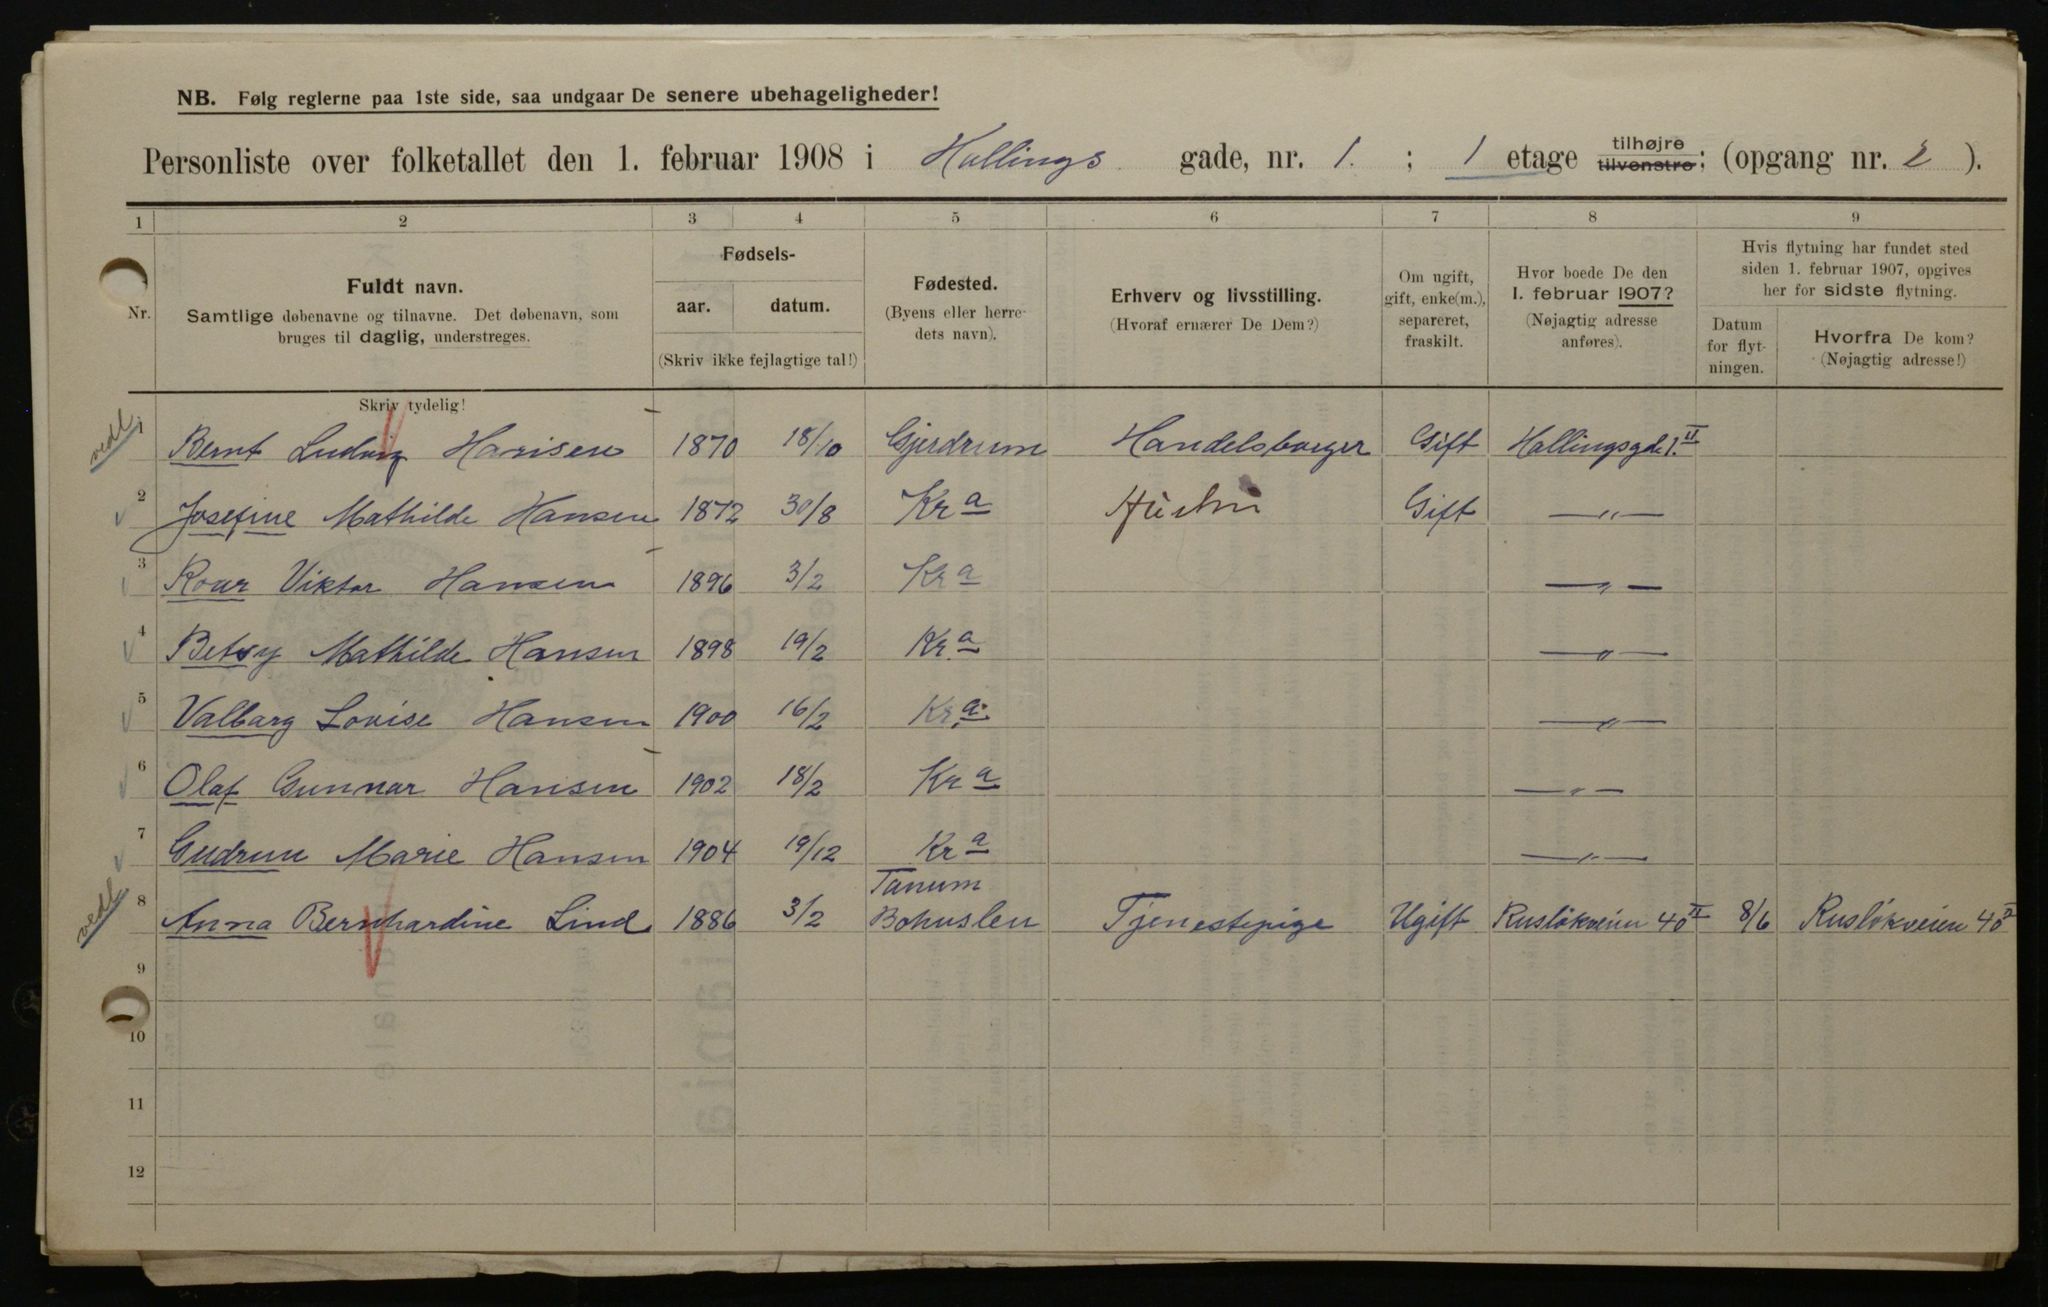 NB. Følg reglerne paa 1ste side, saa undgaar De senere ubehageligheder!
Personliste over folketallet den 1. februar 1908 i Hallings gade, nr. 1. ; 1 etage tilhøjre tilvenstre; (opgang nr. 2 ).
1 2 3 4 5 6 7 8 9
Nr.
Fuldt navn.
Samtlige døbenavne og tilnavne. Det døbenavn, som
bruges til daglig, understreges.
Fødsels-
aar. datum.
(Skriv ikke fejlagtige tal!)
Fødested.
(Byens eller herre-
dets navn).
Erhverv og livsstilling.
(Hvoraf ernærer De Dem?)
Om ugift,
gift, enke(m.),
separeret,
fraskilt.
Hvor boede De den
1. februar 1907?
(Nøjagtig adresse
anføres).
Hvis flytning har fundet sted
siden 1. februar 1907, opgives
her for sidste flytning.
Datum
for flyt-
ningen.
Hvorfra De kom?
(Nøjagtig adresse!)
Skriv tydelig!
vedl 1 Bernt Ludvig Hansen 1870 18/10 Gjerdrum Handelsborger Gift Hallingsgde 1. II
2 Josefine Mathilde Hansen 1872 30/8 Kra Hustru Gift —"—
3 Roar Viktor Hansen 1896 3/2 Kra —"—
4 Betsy Mathilde Hansen 1898 19/2 Kra —"—
5 Valbarg Lovise Hansen 1900 16/2 Kra —"—
6 Olaf Gunnar Hansen 1902 18/2 Kra —"—
7 Gudrun Marie Hansen 1904 19/12 Kra —"—
Tanum
vedl 8 Anna Bernhardine Lind 1886 3/2 Bohuslen Tjenestepige Ugift Rusløkveien 40 II 8/6 Rusløkveien 40 II
9
10
11
12